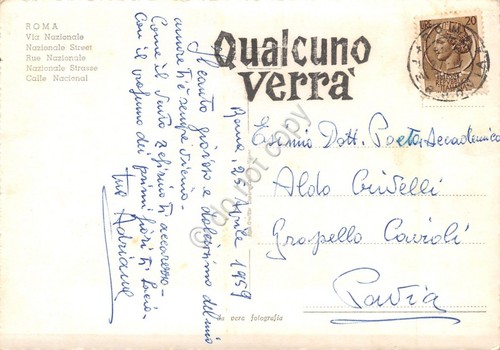 ROMA
Via Nazionale
Nazionale Street
Rue Nazionale
Nazionale Strasse
Calle Nacional
Qualcuno
verrà
20
Roma, 25 Aprile 1959
Il canto gioioso e dolcissimo del mio
amore ti è sempre vicino.
Come il vento zefirino ti accarezzo
Con il profumo dei primi fiori ti bacio
tua Adriana
Esimio Dott. Poeta Accademico
Aldo Crivelli
Gropello Cairoli
Pavia
vera fotografia
do not copy